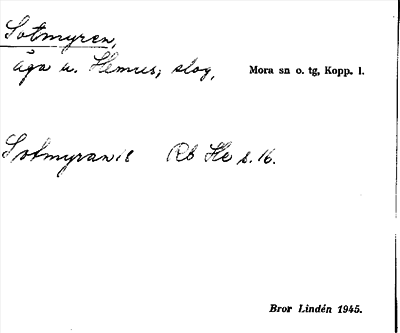 Sotmyren,
äga u. Hemus; slog, Mora sn o. tg, Kopp. l.
Sotmyran 18 Rb He s. 16.
Bror Lindén 1945.